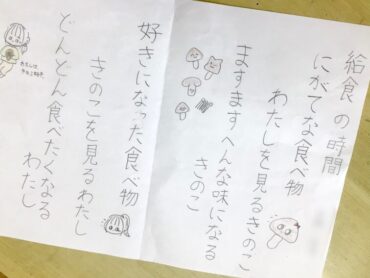 給食の時間
にがてな食べ物
わたしを見るきのこ
ますますへんな味になる
きのこ
好きになった食べ物
きのこを見るわたし
どんどん食べたくなる
わたし